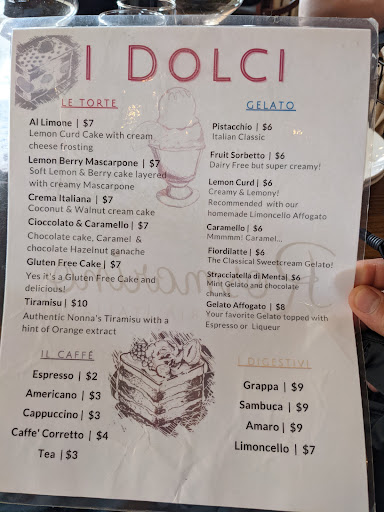 I DOLCI
LE TORTE
Al Limone | $7
Lemon Curd Cake with cream
cheese frosting
Lemon Berry Mascarpone | $7
Soft Lemon & Berry cake layered
with creamy Mascarpone
Crema Italiana | $7
Coconut & Walnut cream cake
Cioccolato & Caramello | $7
Chocolate cake, Caramel &
chocolate Hazelnut ganache
Gluten Free Cake | $7
Yes it's a Gluten Free Cake and
delicious!
Tiramisu | $10
Authentic Nonna's Tiramisu with a
hint of Orange extract
GELATO
Pistacchio | $6
Italian Classic
Fruit Sorbetto | $6
Dairy Free but super creamy!
Lemon Curd | $6
Creamy & Lemony!
Recommended with our
homemade Limoncello Affogato
Caramello | $6
Mmmmm! Caramel...
Fiordilatte | $6
The Classical Sweetcream Gelato!
Stracciatella di Menta| $6
Mint Gelato and chocolate
chunks
Gelato Affogato | $8
Your favorite Gelato topped with
Espresso or Liqueur
IL CAFFÉ
Espresso | $2
Americano | $3
Cappuccino| $3
Caffe' Corretto | $4
Tea | $3
I DIGESTIVI
Grappa | $9
Sambuca | $9
Amaro | $9
Limoncello | $7